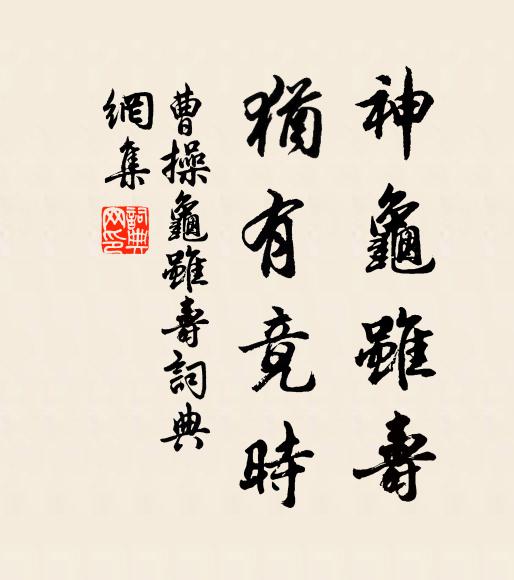 神龜雖壽
猶有竟時
曹操龜雖壽詞典
網集
詞典網印